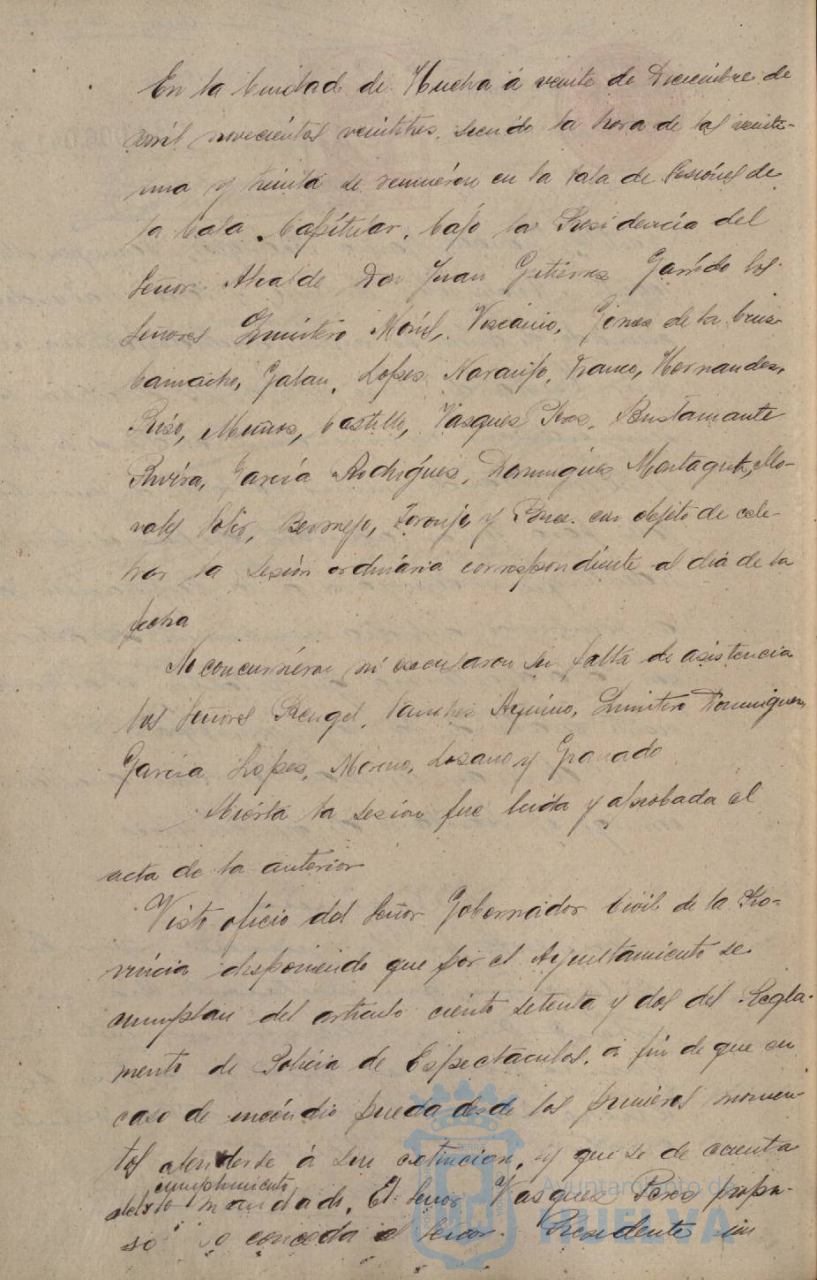 En la Ciudad de Huelva á veinte de Diciembre de
mil novecientos veintitres, siendo la hora de las veinti-
una y treinta se reunieron en la Sala de Sesiones de
la Casa Capitular, bajo la Presidencia del
Señor Alcalde Don Juan Gutierres Garrido los
Señores Quintero Moríl, Vizcaino, Gomes de la Cruz
Camacho, Galan, Lopes Naranjo, Franco, Hernandes,
Rizo, Muños, Castillo, Vasques Peres, Bustamante
Rivéra, García Rodrígues, Domingues Mortagut, Mo-
rales Soler, Bermejo, Toronjo y Ponce con objeto de cele-
brar la sesión ordinária correspondiente al dia de la
fecha
No concurrieron ni escusaron su falta de asistencia
los Señores Rengel, Sanches Aquino, Quintero Domingues,
García Lopes, Moreno, Lozano y Granado
Abiérta la sesion fue leida y aprobada el
acta de la anterior
Visto oficio del Señor Gobernador Civil de la Pro-
vincia disponiendo que por el Ayuntamiento se
cumplan del artículo ciento setenta y dos del Regla-
mento de Policia de Espectáculos, á fin de que en
caso de incéndio pueda desde los primeros momen-
tos atenderse á su extincion, y que se de cuenta
cumplimiento
de lo mandado, El Señor Vasques Peres propu-
so se conceda al Señor Presidente un
Ayuntamiento de
HUELVA